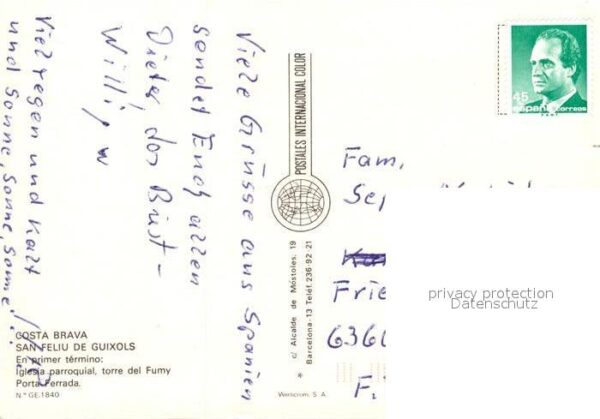 Viele Grüsse aus Spanien
sendet Euch allen
Dieter, das Biest –
Willi, w
Viel regen und Kalt
und Sonne, Sonne, Sonne!...
COSTA BRAVA
SAN FELIU DE GUIXOLS
En primer término:
Iglesia parroquial, torre del Fumy
Porta Ferrada.
N.º GE.1840
POSTALES INTERNACIONAL COLOR
c/ Alcalde de Móstoles, 19
Barcelona-13 Telef. 236-92-21
45
españa correos
FNMT
Fam.
Frie
6360
F.
privacy protection
Datenschutz